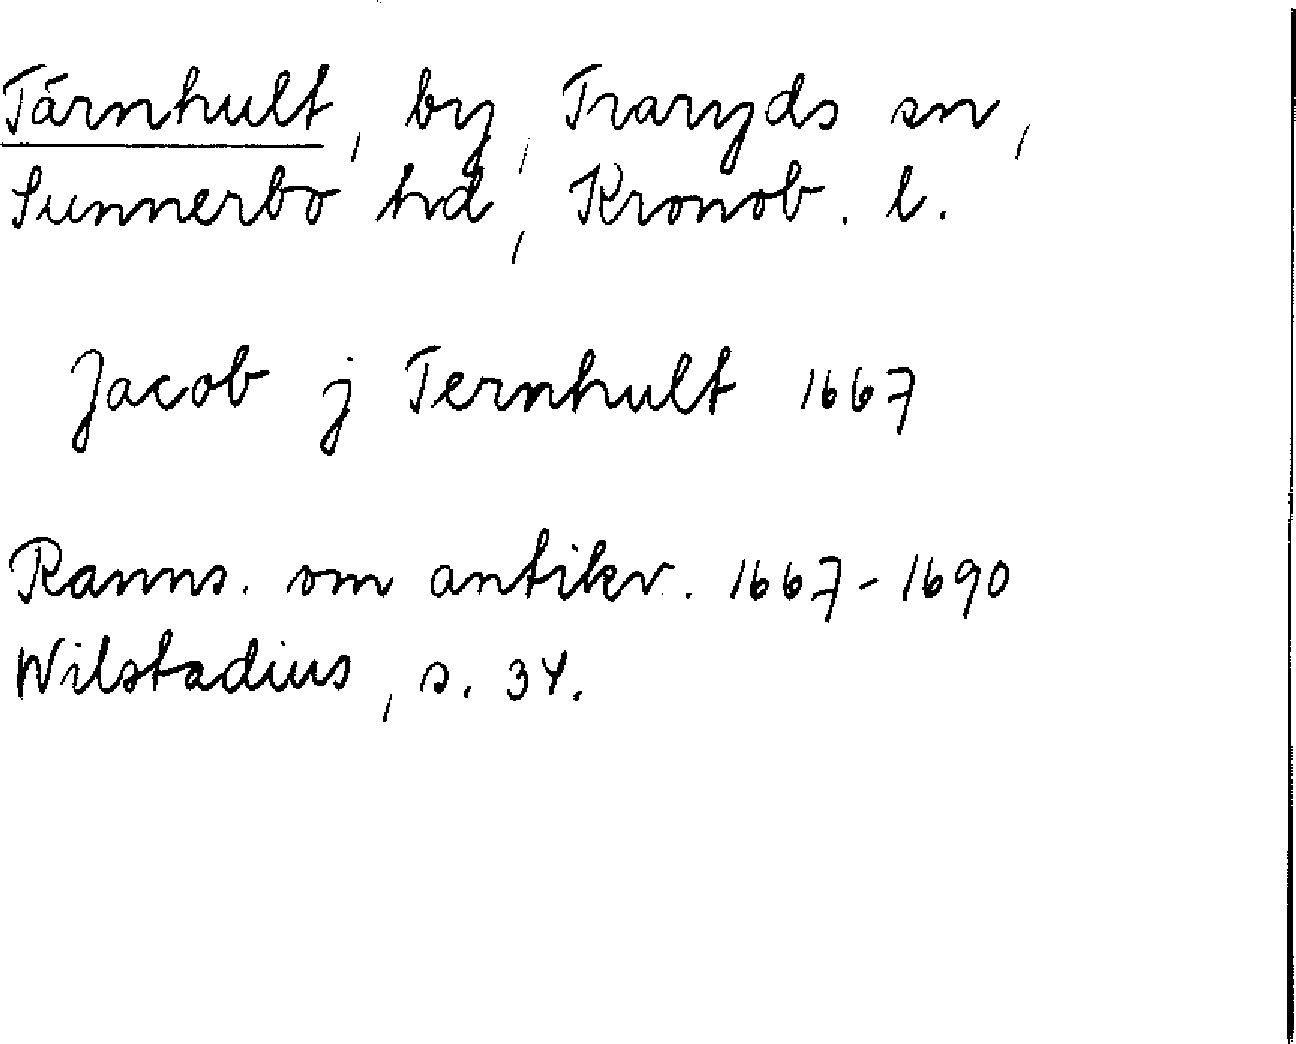 Tärnhult, by, Traryds sn,
Sunnerbo hd, Kronob. l.
Jacob j Ternhult 1667
Ranns. om antikv. 1667-1690
Wilstadius, s. 34.